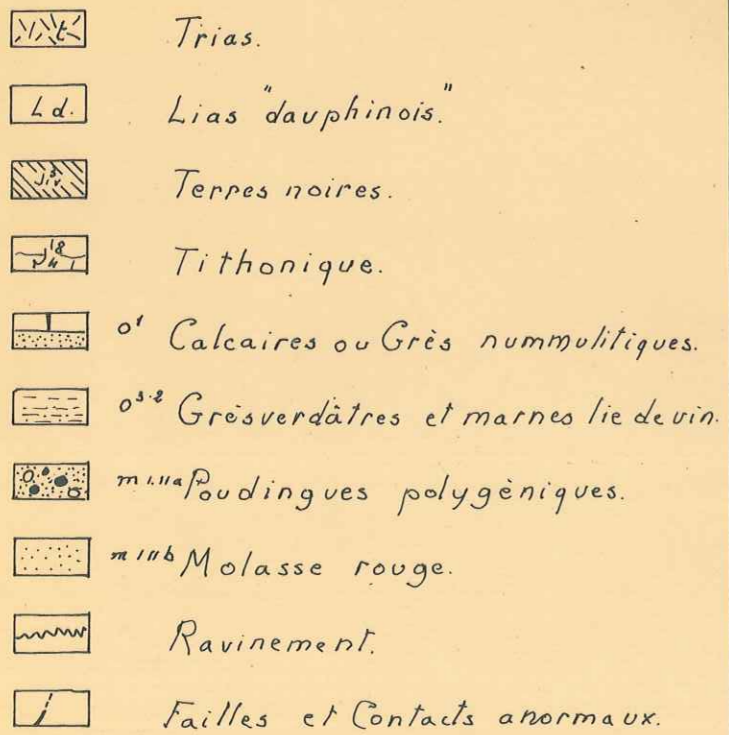 t Trias.
L d. Lias "dauphinois."
Terres noires.
Tithonique.
o¹ Calcaires ou Grès nummulitiques.
o³·² Grès verdâtres et marnes lie de vin.
m I.IIa Poudingues polygèniques.
m I IIb Molasse rouge.
Ravinement.
Failles et Contacts anormaux.